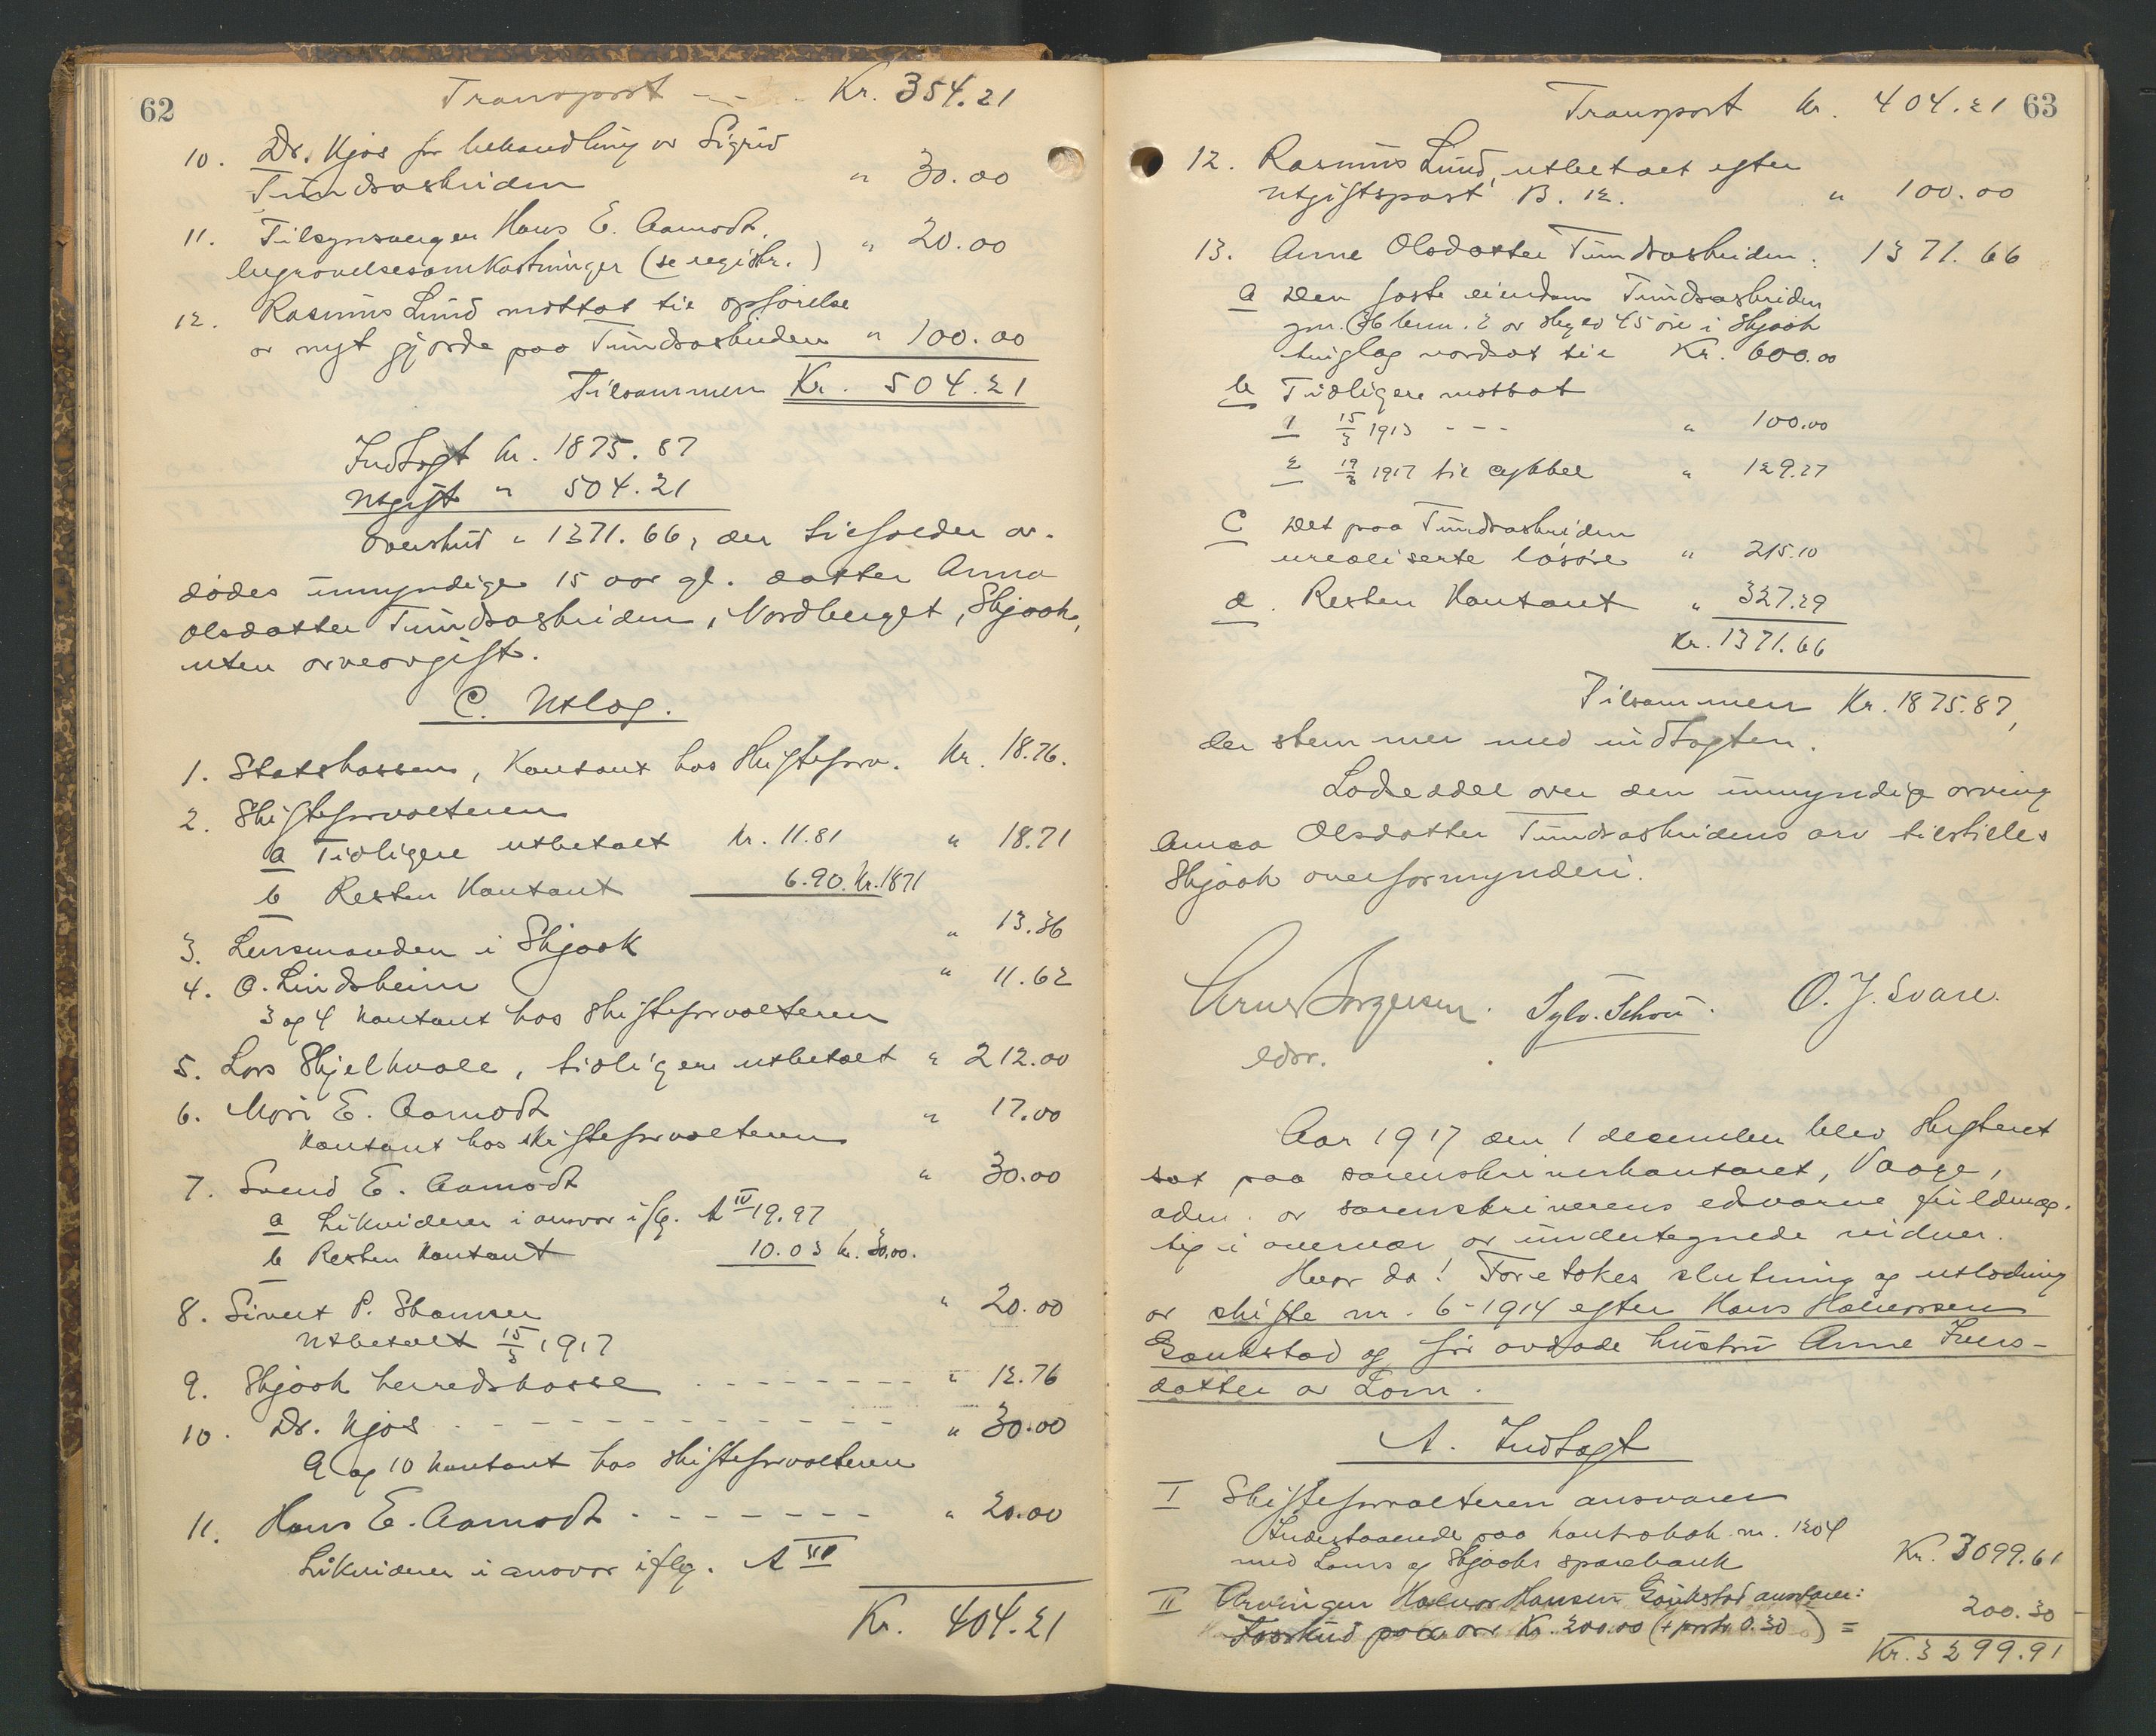 62
Transport - - . Kr. 354.21
10. Dr. Kjos for behandling av Sigrid
Tundraskriden " 30.00
11. Tilsynsverge Hans E. Aamodt.
begravelsesomkostninger (se registr.) " 20.00
12. Rasmus Lund mottat til opførelse
av nyt gjærde paa Tundraskriden " 100.00
Tilsammen Kr. 504.21
Indtægt kr. 1875.87
Utgift " 504.21
Overskud " 1371.66, der tilfalder av-
dødes umyndige 15 aar gl. datter Anna
Olsdatter Tundraskriden, Nordberget, Skjaak,
uten arveavgift.
C. Utlæg.
1. Statskassen, Kontant hos Skifteforv. Kr. 18.76.
2. Skifteforvalteren
a Tidligere utbetalt kr. 11.81 " 18.71
b Resten Kontant 6.90. Kr. 1871
3. Lensmanden i Skjaak " 13.36
4. O. Lindsheim " 11.62
3 og 4 kontant hos skifteforvalteren
5. Lars Skjelkvale, tidligere utbetalt " 212.00
6. Mari E. Aamodt " 17.00
Kontant hos skifteforvalteren
7. Svend E. Aamodt " 30.00
a Likviderer i ansvar iflg. A IV 19.97
b Resten kontant 10.03 kr. 30.00.
8. Sivert P. Skamsar " 20.00
Utbetalt 15/3 1917
9. Skjaak herredskasse - - - - - - - - " 12.76
10. Dr. Kjos - - - - - - - - - - - " 30.00
9 og 10 kontant hos skifteforvalteren
11. Hans E. Aamodt - - - - - - - " 20.00
Likviderer i ansvar iflg. A III
Kr. 404.21
63
Transport kr. 404.21
12. Rasmus Lund, utbetalt efter
utgiftspost B. 12. " 100.00
13. Anne Olsdatter Tundraskriden: 1371.66
a Den faste eiendom Tundraskriden
gnr. 36 brnr. 2 av skyld 45 øre i Skjaak
tinglag værdsat til Kr. 600.00
b Tidligere mottat
1 15/3 1913 - - - " 100.00
2 19/3 1917 til cykkel " 129.27
C Det paa Tundraskriden
urealiserte løsøre " 215.10
d. Resten Kontant " 327.29
Kr. 1371.66
Tilsammen Kr. 1875.87,
der stemmer med indtægten.
Lodseddel over den umyndige arving
Anna Olsdatter Tundraskridens arv tilstilles
Skjaak overformynderi.
Arne Jørgensen. Sylv. Schou. O. J. Svare.
edsv.
Aar 1917 den 1 december blev skifteret
sat paa sorenskriverkontoret, Vaage,
adm. av sorenskriverens edsvorne fuldmæg-
tig i overvær av undertegnede vidner.
Hvor da! Foretokes slutning og utlodning
av skifte nr. 6-1914 efter Hans Halvorsen
Graukstad og før avdøde hustru Anne Ivers-
datter av Lom.
A. Indtægt
I Skifteforvalteren ansvarer
Indestaaende paa kontrabok nr. 1204
med Loms og Skjaaks sparebank Kr. 3099.61
II Arvingen Halvor Hansen Graukstad ansvarer:
Forskud paa arv Kr. 200.00 (+ porto 0.30) = 200.30
Kr. 3299.91